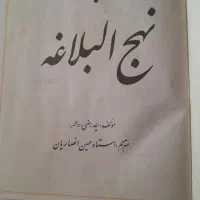 نهج البلاغه
مؤلف: سید رضی (رحمه الله)
مترجم: استاد حسین انصاریان